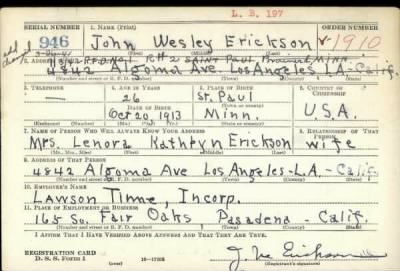 L. B. 197
SERIAL NUMBER 1. NAME (Print) ORDER NUMBER
946 John Wesley Erickson V-1910
(First) (Middle) (Last)
2. ADDRESS (Print)
4842 Algoma Ave. Los Angeles L.A.-Calif.
(Number and street or R. F. D. number) (Town) (County) (State)
3. TELEPHONE 4. AGE IN YEARS 5. PLACE OF BIRTH 6. COUNTRY OF CITIZENSHIP
— 26 St. Paul
DATE OF BIRTH (Town or county)
Oct 20, 1913 Minn. U.S.A.
(Mo.) (Day) (Yr.) (State or country)
7. NAME OF PERSON WHO WILL ALWAYS KNOW YOUR ADDRESS 8. RELATIONSHIP OF THAT PERSON
Mrs. Lenora Kathryn Erickson wife
(Mr., Mrs., Miss) (First) (Middle) (Last)
9. ADDRESS OF THAT PERSON
4842 Algoma Ave Los Angeles-L.A.-Calif.
(Number and street or R. F. D. number) (Town) (County) (State)
10. EMPLOYER'S NAME
Lawson Time, Incorp.
11. PLACE OF EMPLOYMENT OR BUSINESS
165 So. Fair Oaks Pasadena - Calif.
(Number and street or R. F. D. number) (Town) (County) (State)
I AFFIRM THAT I HAVE VERIFIED ABOVE ANSWERS AND THAT THEY ARE TRUE.
REGISTRATION CARD
D. S. S. Form 1 (over) (Registrant's signature)